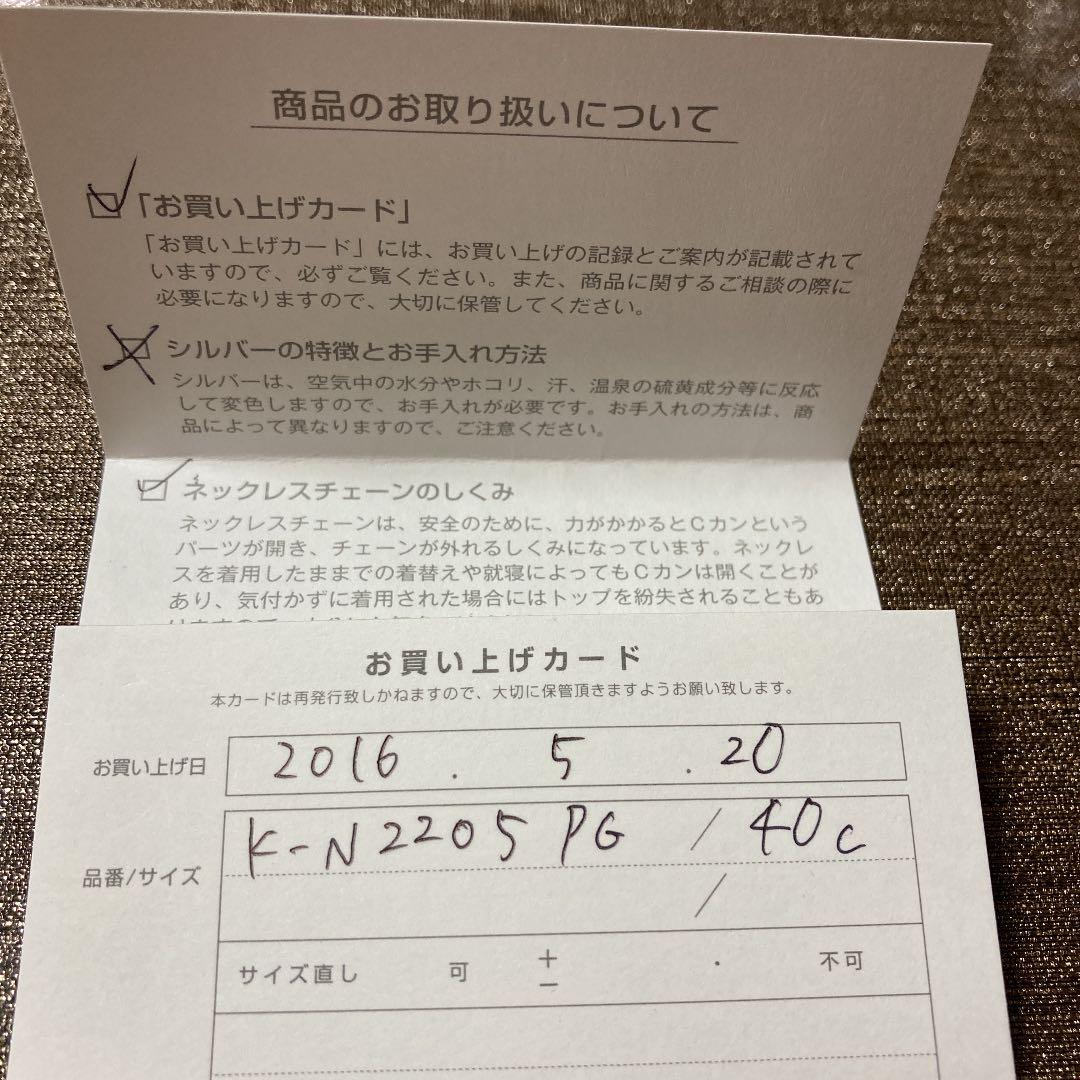 商品のお取り扱いについて
「お買い上げカード」
「お買い上げカード」には、お買い上げの記録とご案内が記載されて
いますので、必ずご覧ください。また、商品に関するご相談の際に
必要になりますので、大切に保管してください。
シルバーの特徴とお手入れ方法
シルバーは、空気中の水分やホコリ、汗、温泉の硫黄成分等に反応
して変色しますので、お手入れが必要です。お手入れの方法は、商
品によって異なりますので、ご注意ください。
ネックレスチェーンのしくみ
ネックレスチェーンは、安全のために、力がかかるとCカンという
パーツが開き、チェーンが外れるしくみになっています。ネックレ
スを着用したままでの着替えや就寝によってもCカンは開くことが
あり、気付かずに着用された場合にはトップを紛失されることもあ
お買い上げカード
本カードは再発行致しかねますので、大切に保管頂きますようお願い致します。
お買い上げ日 2016 . 5 . 20
品番/サイズ K-N2205 PG / 40c
/
サイズ直し 可 + − ・ 不可